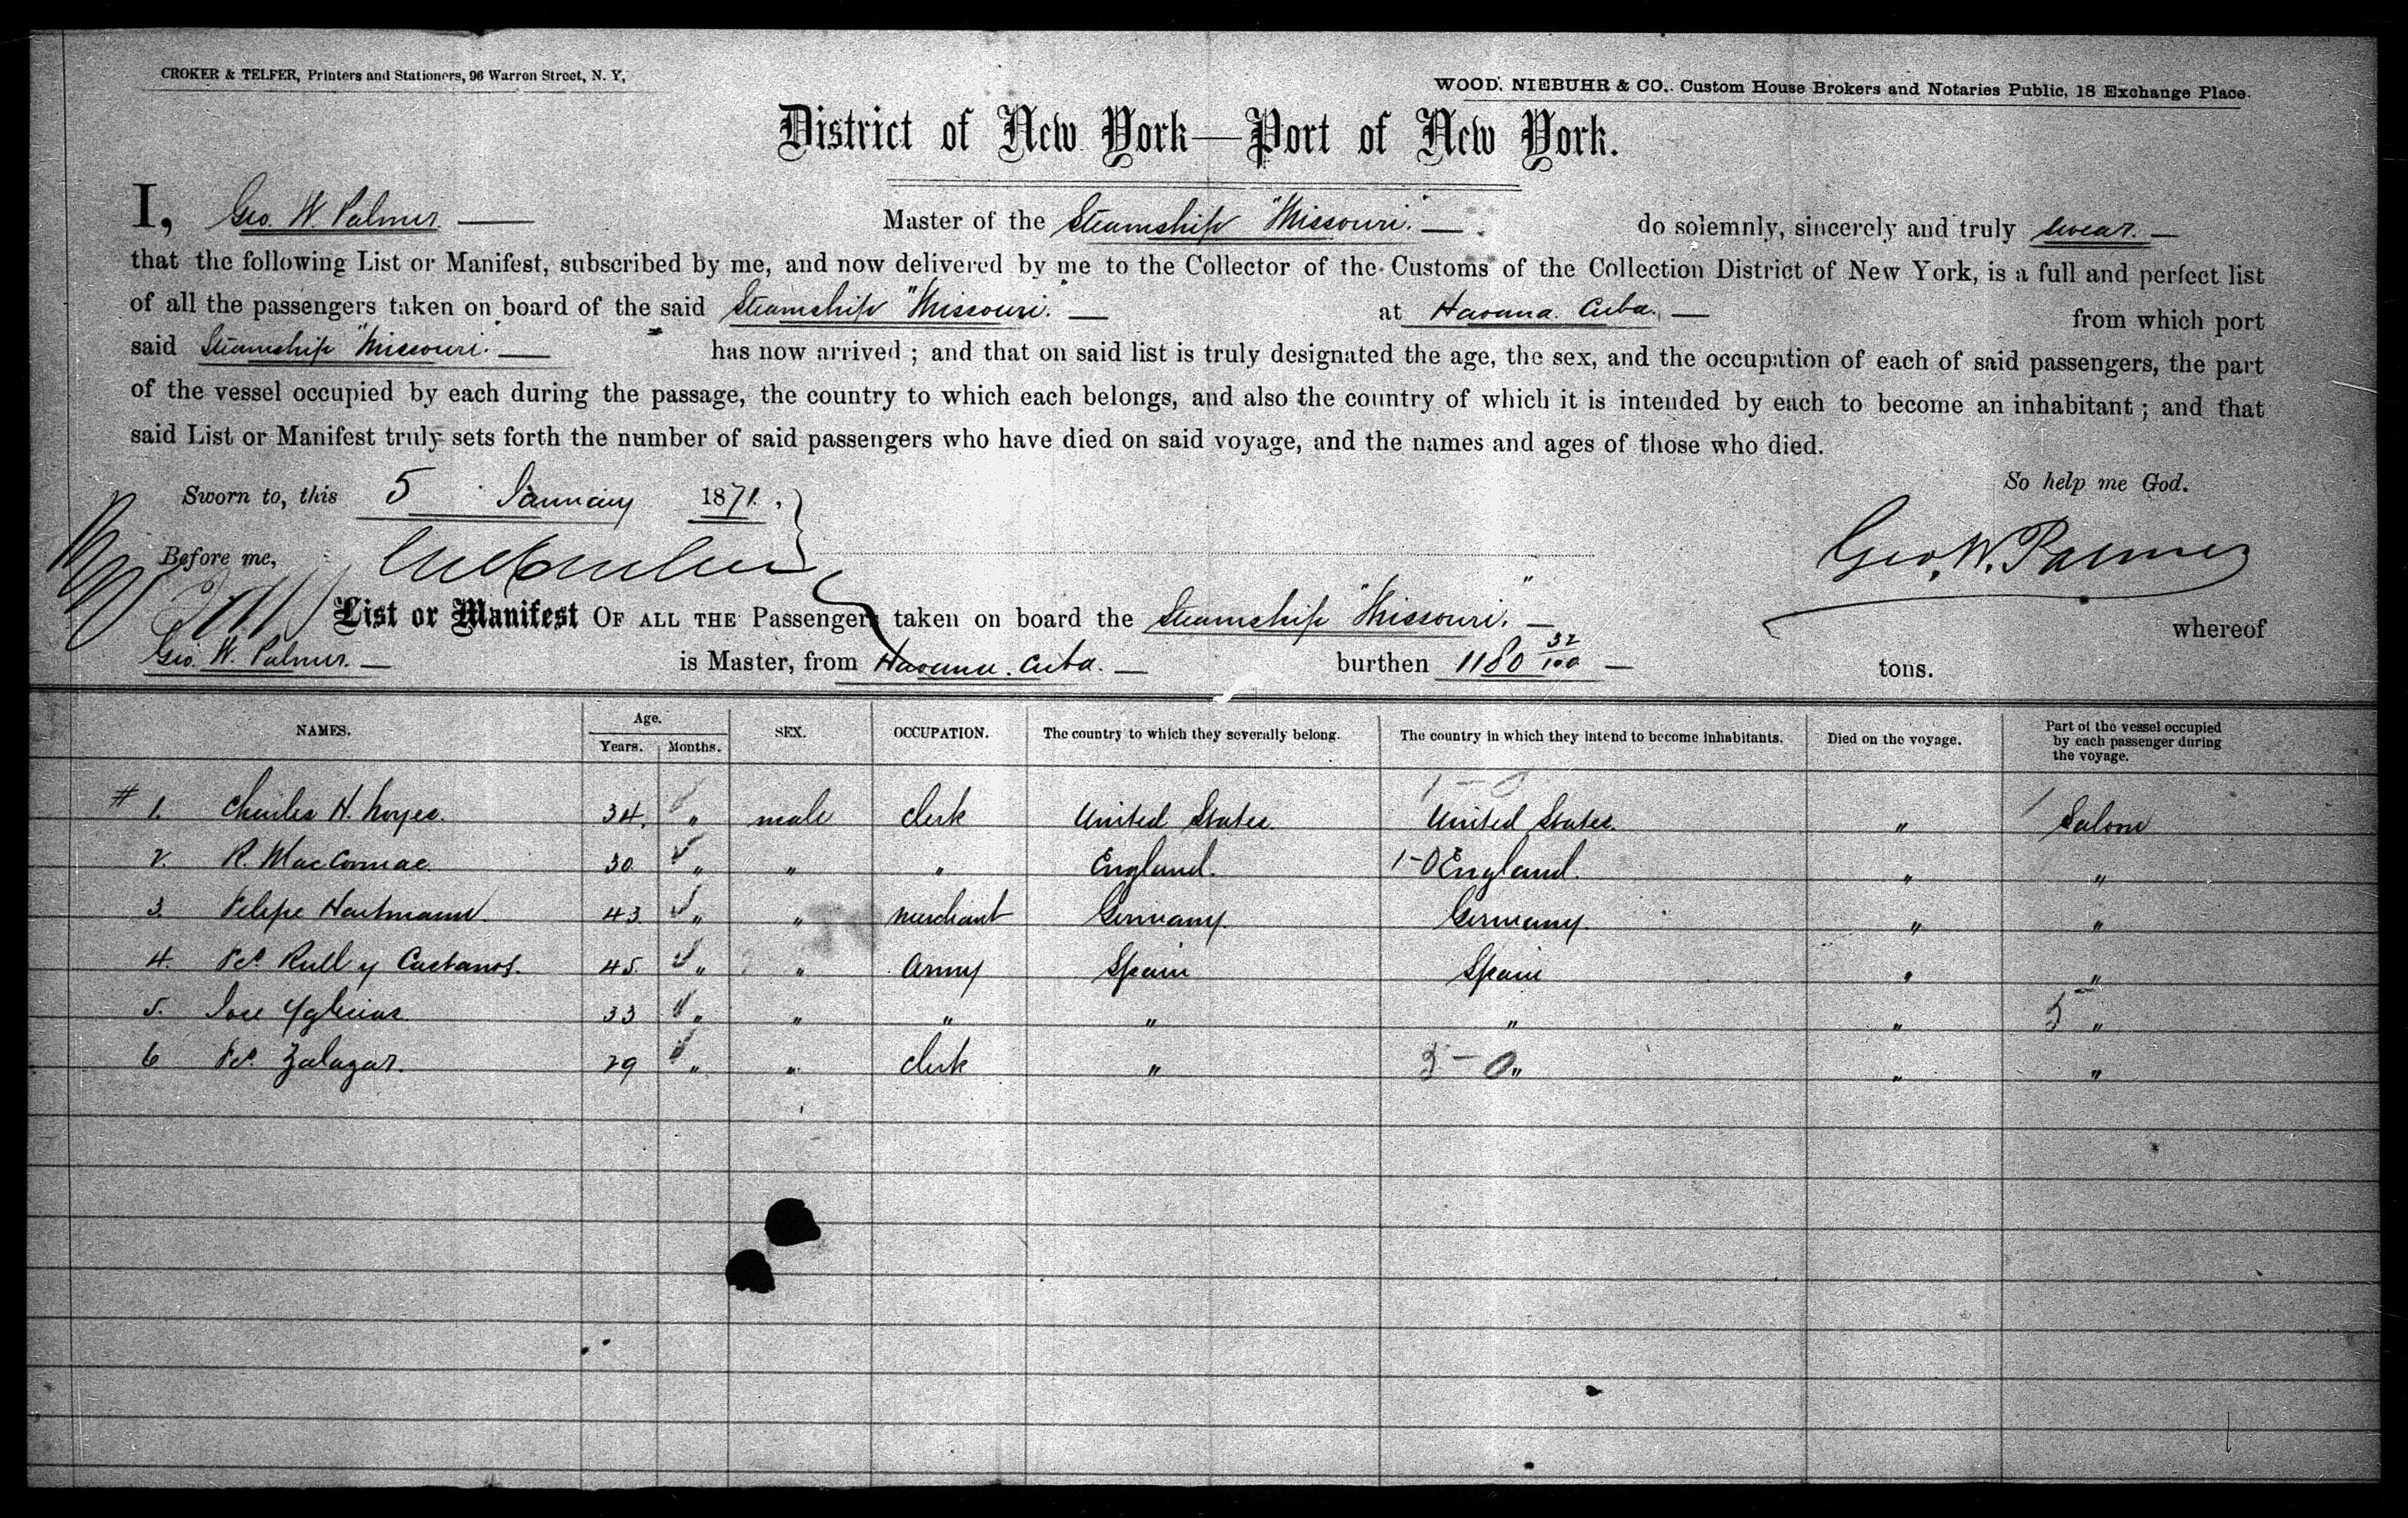 CROKER & TELFER, Printers and Stationers, 96 Warren Street, N. Y,
WOOD. NIEBUHR & CO.. Custom House Brokers and Notaries Public, 18 Exchange Place.
District of New York—Port of New York.
I, Geo. W. Palmer. — Master of the Steamship "Missouri." — do solemnly, sincerely and truly swear. —
that the following List or Manifest, subscribed by me, and now delivered by me to the Collector of the Customs of the Collection District of New York, is a full and perfect list
of all the passengers taken on board of the said Steamship "Missouri." — at Havana. Cuba. — from which port
said Steamship "Missouri." — has now arrived ; and that on said list is truly designated the age, the sex, and the occupation of each of said passengers, the part
of the vessel occupied by each during the passage, the country to which each belongs, and also the country of which it is intended by each to become an inhabitant ; and that
said List or Manifest truly sets forth the number of said passengers who have died on said voyage, and the names and ages of those who died.
So help me God.
Sworn to, this 5 January 1871.
Before me,
Geo. W. Palmer
List or Manifest OF ALL THE Passengers taken on board the Steamship "Missouri." — whereof
Geo. W. Palmer. — is Master, from Havana. Cuba. — burthen 1180 32/100 — tons.
NAMES. Age. Years. Months. SEX. OCCUPATION. The country to which they severally belong. The country in which they intend to become inhabitants. Died on the voyage. Part of the vessel occupied by each passenger during the voyage.
# 1. Charles H. Noyes. 34. " male clerk United States. United States. " Saloon
2. R. MacCormac. 30 " " " England. 1-0 England. " "
3. Felipe Hartmann. 43 " " merchant Germany. Germany. " "
4. Rull y Castanos. 45 " " Army Spain Spain " "
5. Jose Yglecias 33 " " " " " " 5 "
6. Zalazar. 29 " " clerk " 5-0 " " "